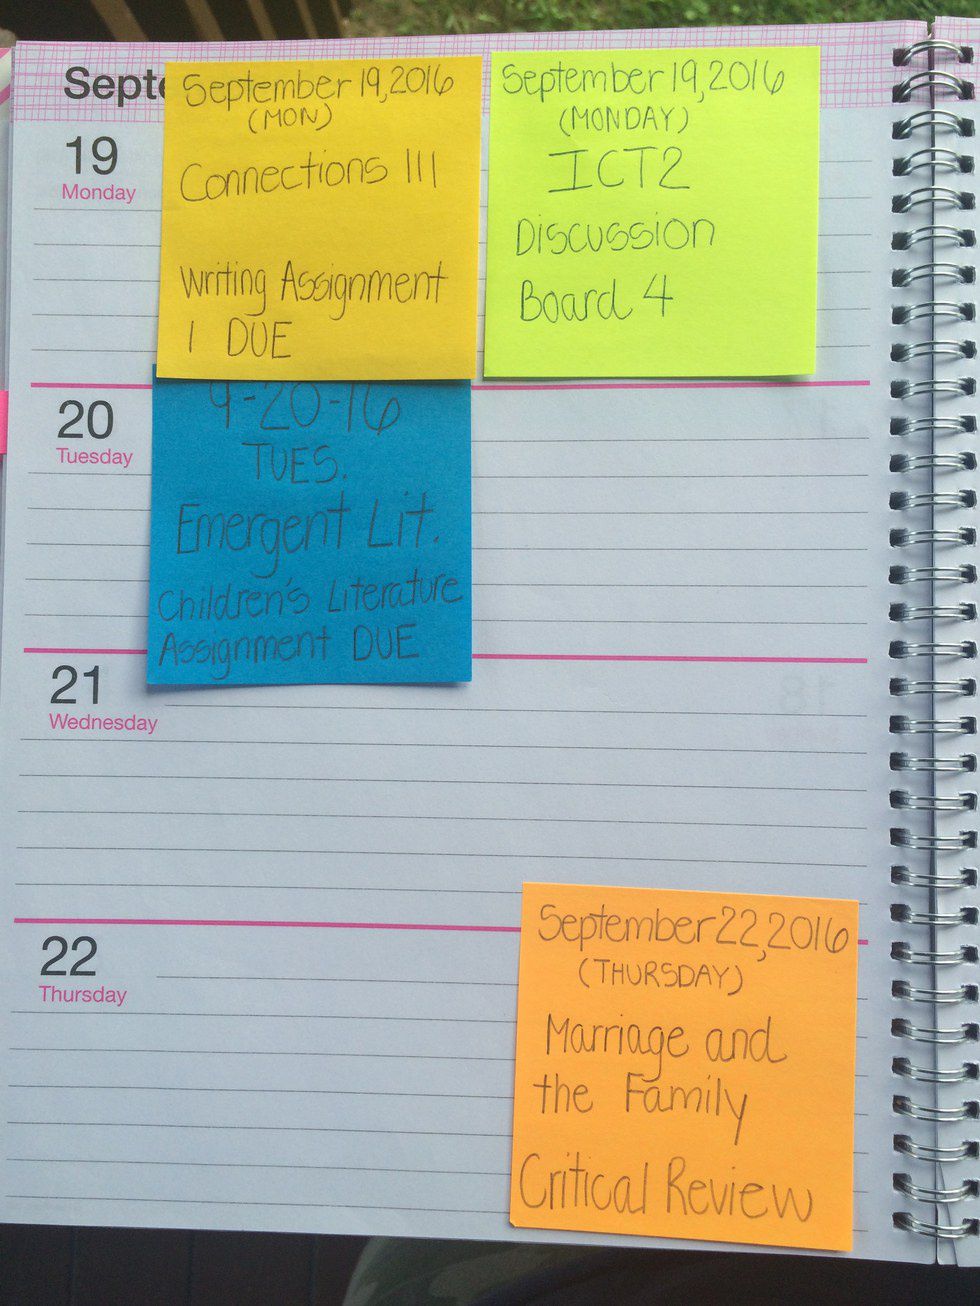 Septe
19
Monday
September 19, 2016
(MON)
Connections III
Writing Assignment
1 DUE
September 19, 2016
(MONDAY)
ICT2
Discussion
Board 4
20
Tuesday
9-20-16
TUES.
Emergent Lit.
Children's Literature
Assignment DUE
21
Wednesday
22
Thursday
September 22, 2016
(THURSDAY)
Marriage and
the Family
Critical Review